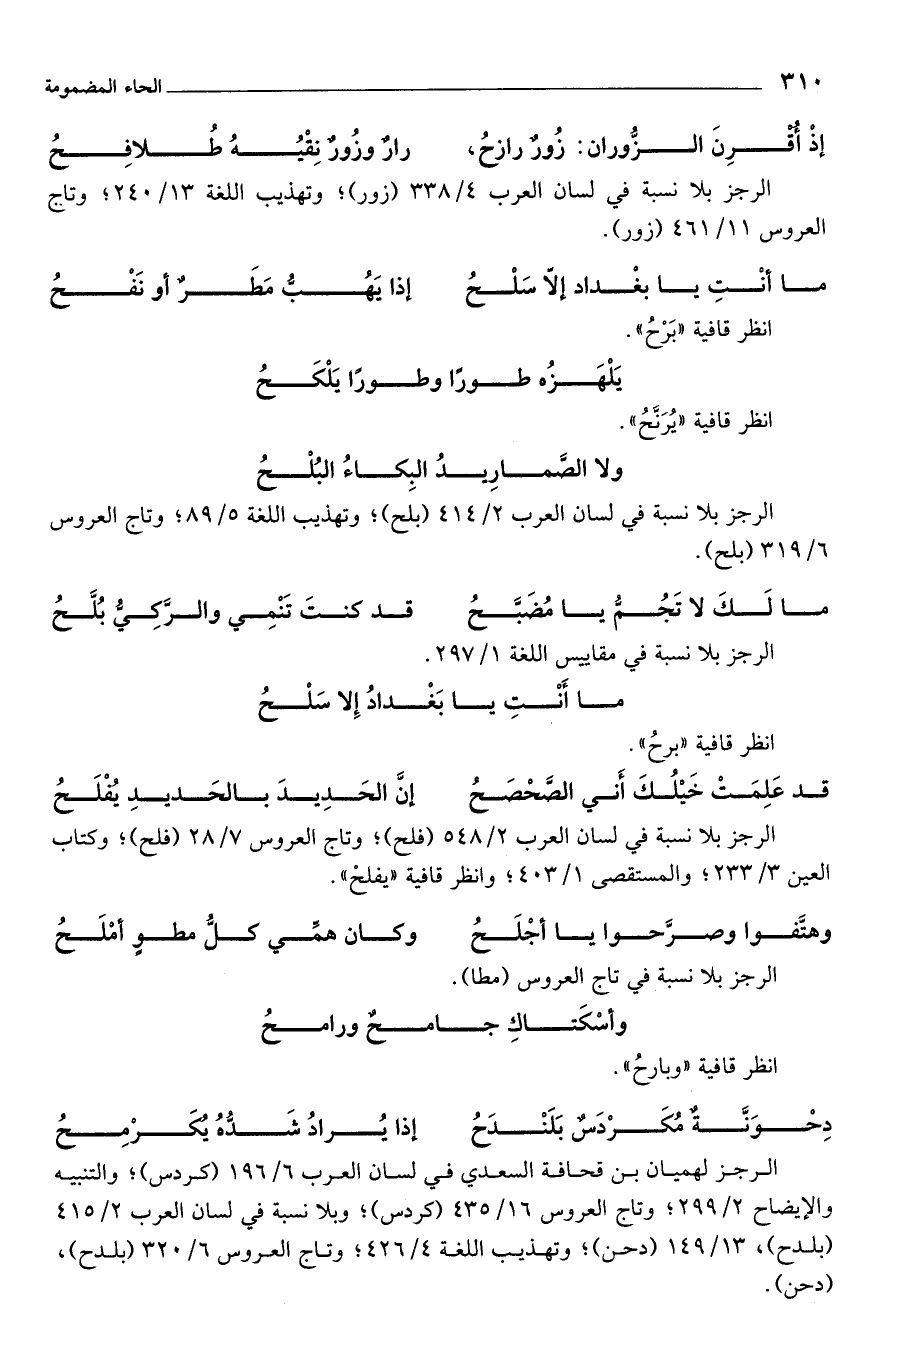 ٣١٠ الحاء المضمومة
إذْ أُقْرِنَ الزُّوران: زُورٌ رازحُ، رارٌ وزُورٌ نِقْيُهُ طُلافِحُ
الرجز بلا نسبة في لسان العرب ٤/ ٣٣٨ (زور)؛ وتهذيب اللغة ١٣/ ٢٤٠؛ وتاج
العروس ١١/ ٤٦١ (زور).
ما أنْتِ يا بغْداد إلاّ سَلْحُ إذا يَهُبُّ مَطَرٌ أو نَفْحُ
انظر قافية «بَرْحُ».
يَلْهَزُه طورًا وطورًا يَلْكَحُ
انظر قافية «يُرَنَّحُ».
ولا الصَّمارِيدُ البِكاءُ البُلْحُ
الرجز بلا نسبة في لسان العرب ٢/ ٤١٤ (بلح)؛ وتهذيب اللغة ٥/ ٨٩؛ وتاج العروس
٦/ ٣١٩ (بلح).
ما لَكَ لا تَجُمُّ يا مُضَبَّحُ قد كنتَ تَنْمِي والرَّكِيُّ بُلَّحُ
الرجز بلا نسبة في مقاييس اللغة ١/ ٢٩٧.
ما أَنْتِ يا بَغْدادُ إِلا سَلْحُ
انظر قافية «برحُ».
قد عَلِمَتْ خَيْلُكَ أَني الصَّحْصَحُ إنَّ الحَدِيدَ بالحَديدِ يُفْلَحُ
الرجز بلا نسبة في لسان العرب ٢/ ٥٤٨ (فلح)؛ وتاج العروس ٧/ ٢٨ (فلح)؛ وكتاب
العين ٣/ ٢٣٣؛ والمستقصى ١/ ٤٠٣؛ وانظر قافية «يفلحْ».
وهتَّفوا وصرَّحوا يا أجْلَحُ وكان همِّي كلُّ مطوٍ أمْلَحُ
الرجز بلا نسبة في تاج العروس (مطا).
وأسْكَتاكِ جامحٌ ورامحُ
انظر قافية «وبارحُ».
دِحْوَنَّةٌ مُكَرْدَسٌ بَلَنْدَحُ إذا يُرادُ شَدُّهُ يُكَرْمِحُ
الرجز لهميان بن قحافة السعدي في لسان العرب ٦/ ١٩٦ (كردس)؛ والتنبيه
والإيضاح ٢/ ٢٩٩؛ وتاج العروس ١٦/ ٤٣٥ (كردس)؛ وبلا نسبة في لسان العرب ٢/ ٤١٥
(بلدح)، ١٣/ ١٤٩ (دحن)؛ وتهذيب اللغة ٤/ ٤٢٦؛ وتاج العروس ٦/ ٣٢٠ (بلدح)،
(دحن).